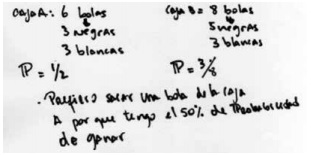 Caja A: 6 bolas
3 negras
3 blancas
P = 1/2
Caja B = 8 bolas
5 negras
3 blancas
P = 3/8
. Prefiero sacar una bola de la caja
A por que tengo el 50% de Probabilidad
de ganar